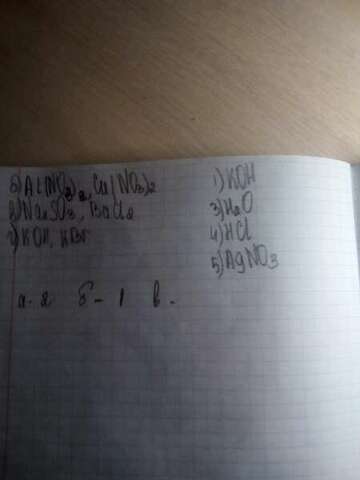 б) Al(NO3)2, Cu(NO3)2
2) Na2SO3, BaCl2
KOH, KBr
1) KOH
3) H2O
4) HCl
5) AgNO3
а - 2 б - 1 в -